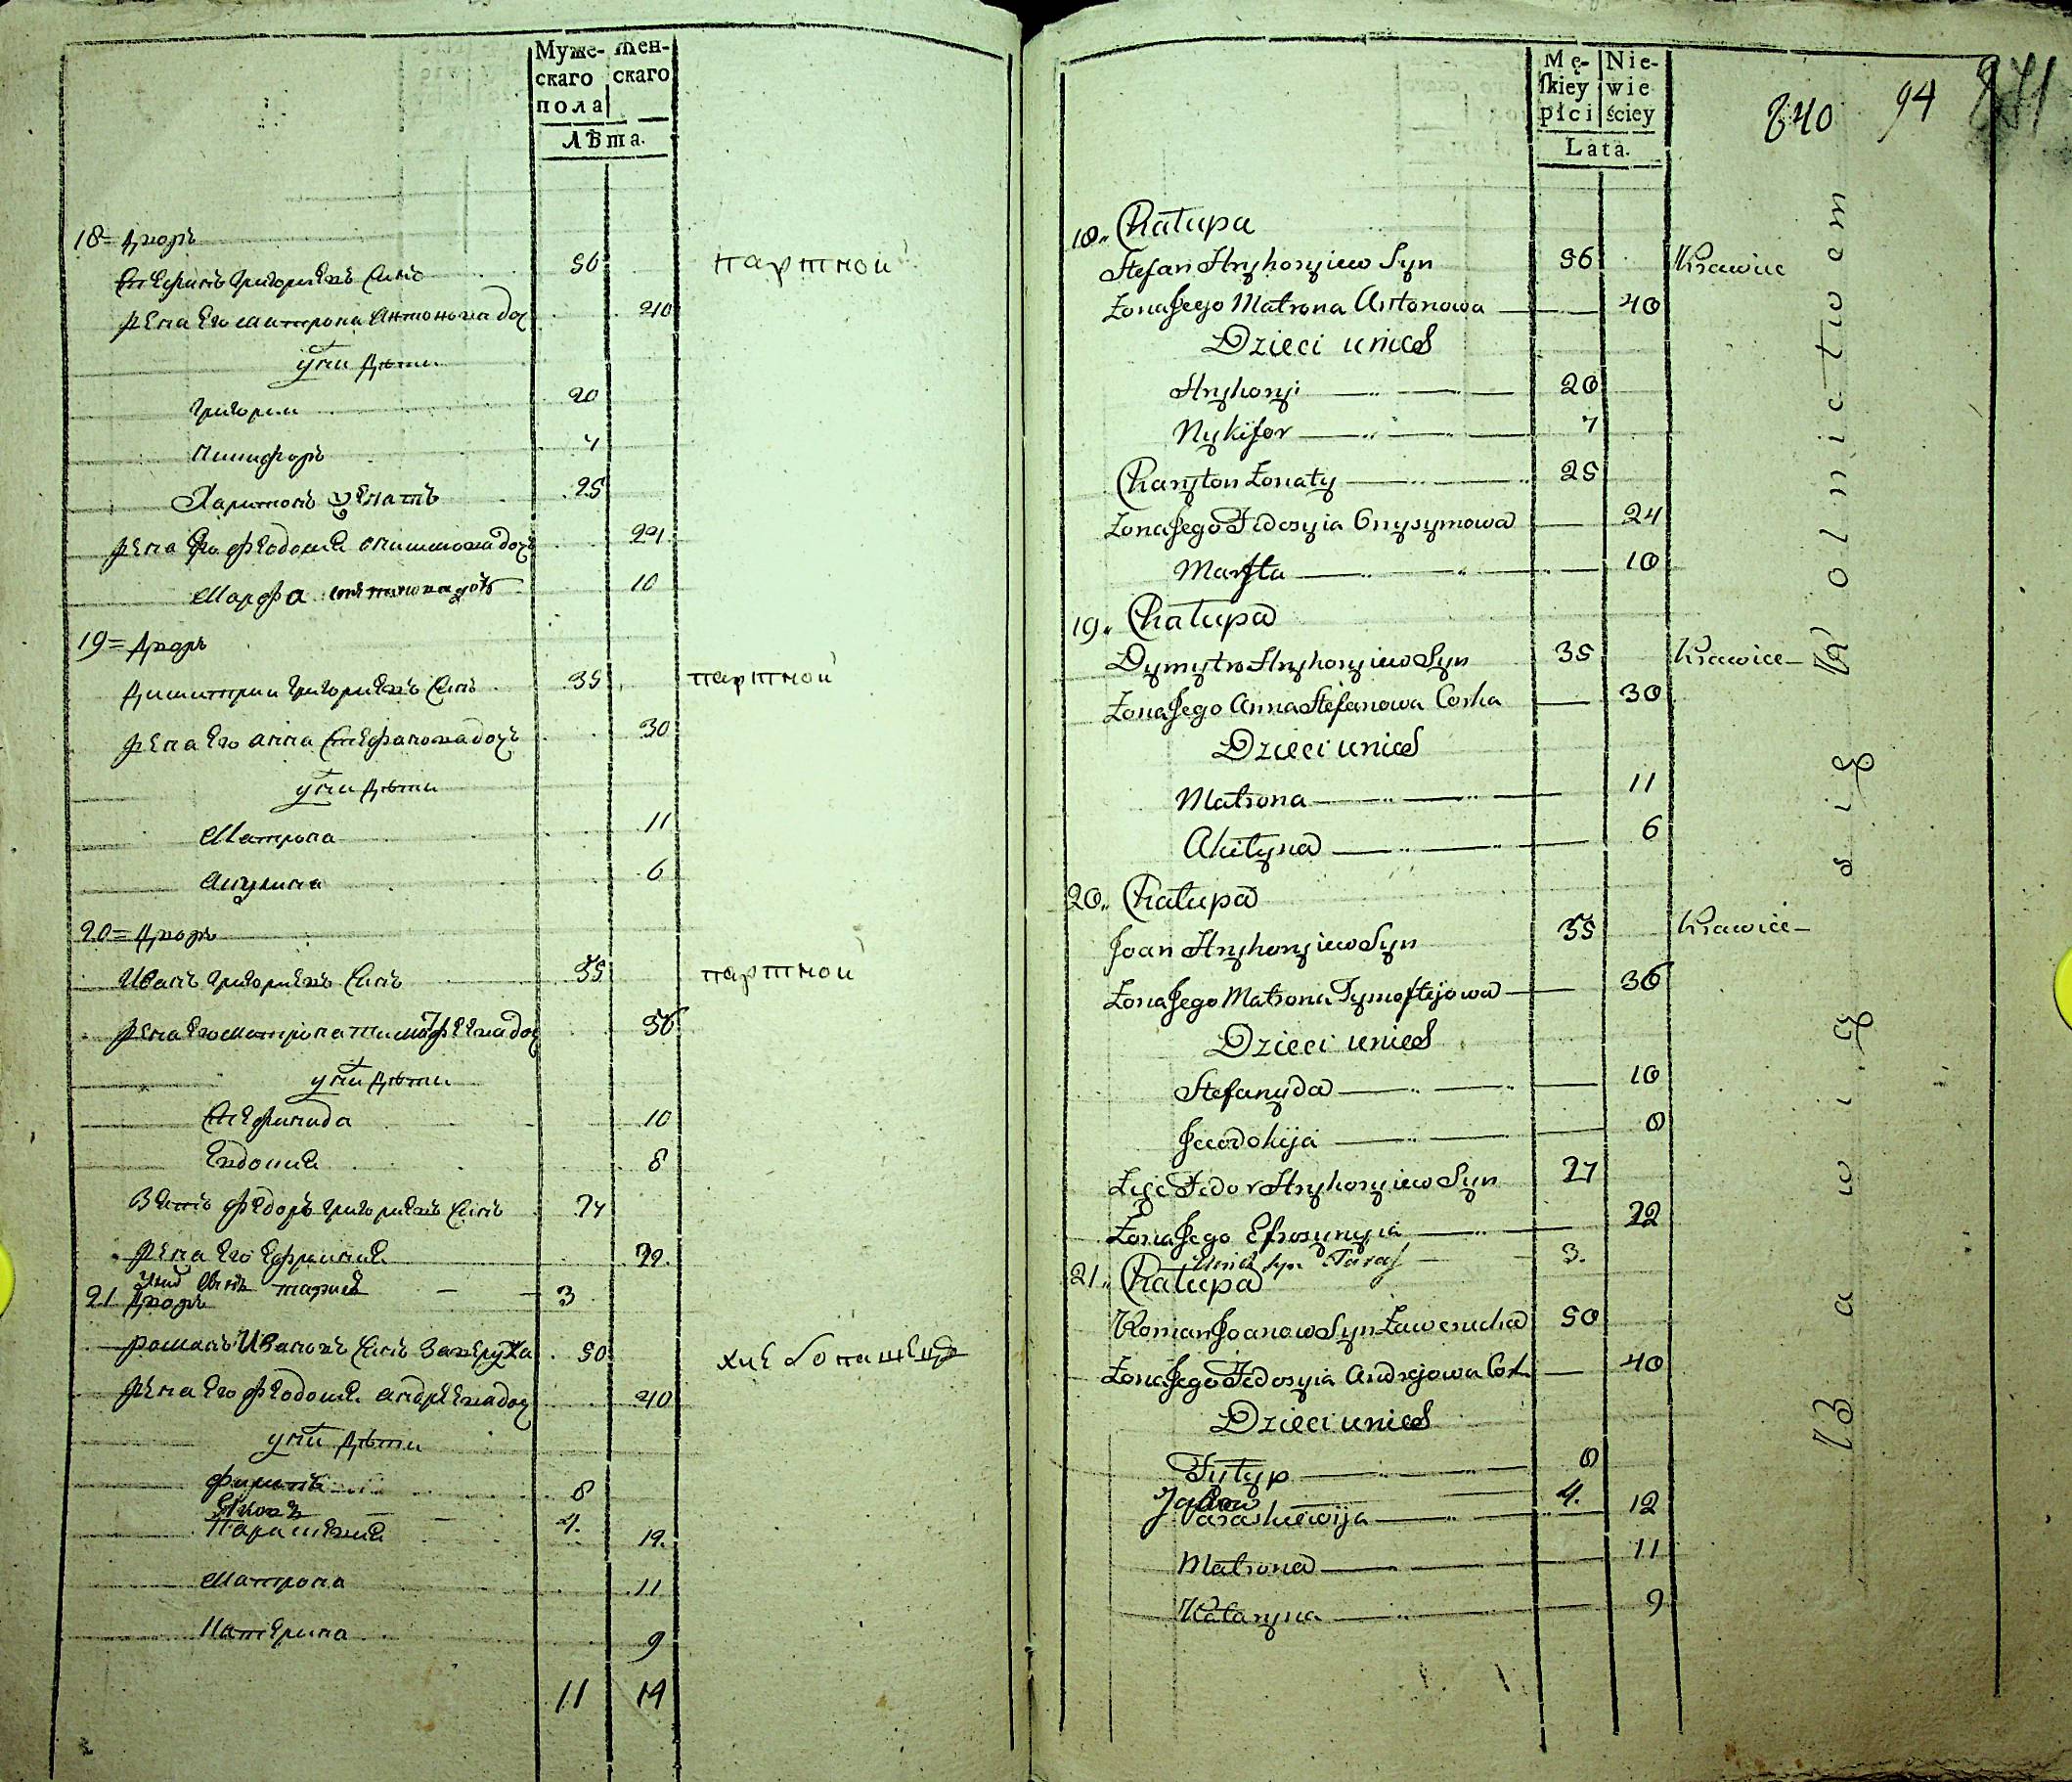 Муже- Жен-
скаго скаго
пола
Лѣта.
18 = Дворъ
Стефанъ Григориевъ Синъ 56 партной
Жена Его Матрона Антонова доч 40
у них Дѣти
Григорий 20
Никифоръ 7
Харитонъ женатъ 25
Жена Его Феодосия Онисимова дочъ 24
Марфа 10
19 = Дворъ
Димитрий Григориевъ Синъ 35 партной
Жена Его Анна Стефанова дочъ 30
у них Дѣти
Матрона 11
Акулина 6
20 = Дворъ
Иванъ Григориевъ Синъ 35 партной
Жена Его Матрона Тимофеева доч 36
у них Дѣти
Стефанида 10
Евдокия 8
Зять Федоръ Григориевъ Синъ 27
Жена Его Ефросиния 22.
3
21 Дворъ
Романъ Ивановъ Синъ Заверуха 50 хлебопашецъ
Жена Его Феодосия Андреева доч 40
у них Дѣти
Филипъ 8
Яковъ 4.
Параскевия 12.
Матрона 11
Катерина 9
11 14
Mę- Nie-
ſkiey wie
płci ściey
Lata.
840 94
18. Chałupa
Stefan Hryhoryiew Syn 56 Krawiec
Żona Jego Matrona Antonowa 40
Dzieci unich
Hryhoryi 20
Nykifor 7
Charyton Żonaty 25
Żona Jego Fedosyia Onysymowa 24
Marfta 10
19. Chałupa
Dymytro Hryhoryiew Syn 35 Krawiec
Żona Jego Anna Stefanowa Corka 30
Dzieci unich
Matrona 11
Akilyna 6
20. Chałupa
Joan Hryhoryiew Syn 35 Krawiec
Żona Jego Matrona Tymoftejowa 36
Dzieci unich
Stefanyda 10
Jewdokija 8
Zięć Fedor Hryhoryiew Syn 27
Żona Jego Efrosynyia 22
Unich syn Taras 3.
21. Chałupa
Roman Joanow Syn Zawerucha 50
Żona Jego Fedosyia Andrejowa Cor 40
Dzieci unich
Fylyp 8
Jakow 4.
Paraskiewija 12
Matrona 11
Kataryna 9
Bawią się Rolnictwem